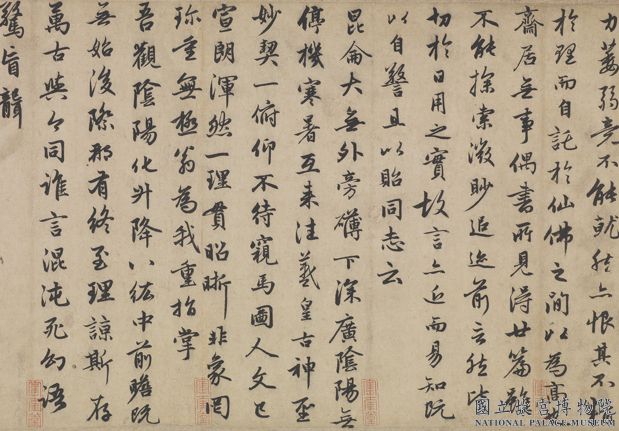 力萎弱竟不能就然亦恨其不精
於理而自託於仙佛之間以為高也
齋居無事偶書所見得廿篇雖
不能探索微眇追迹前言然皆
切於日用之實故言亦近而易知既
以自警且以貽同志云
昆侖大無外旁礴下深廣陰陽無
停機寒暑互來往羲皇古神聖
妙契一俯仰不待窺馬圖人文已
宣朗渾然一理貫昭晰非象罔
珍重無極翁為我重指掌
吾觀陰陽化升降八紘中前瞻既
無始後際那有終至理諒斯存
萬古與今同誰言混沌死幻語
驚盲聾
國立故宮博物院
NATIONAL PALACE MUSEUM